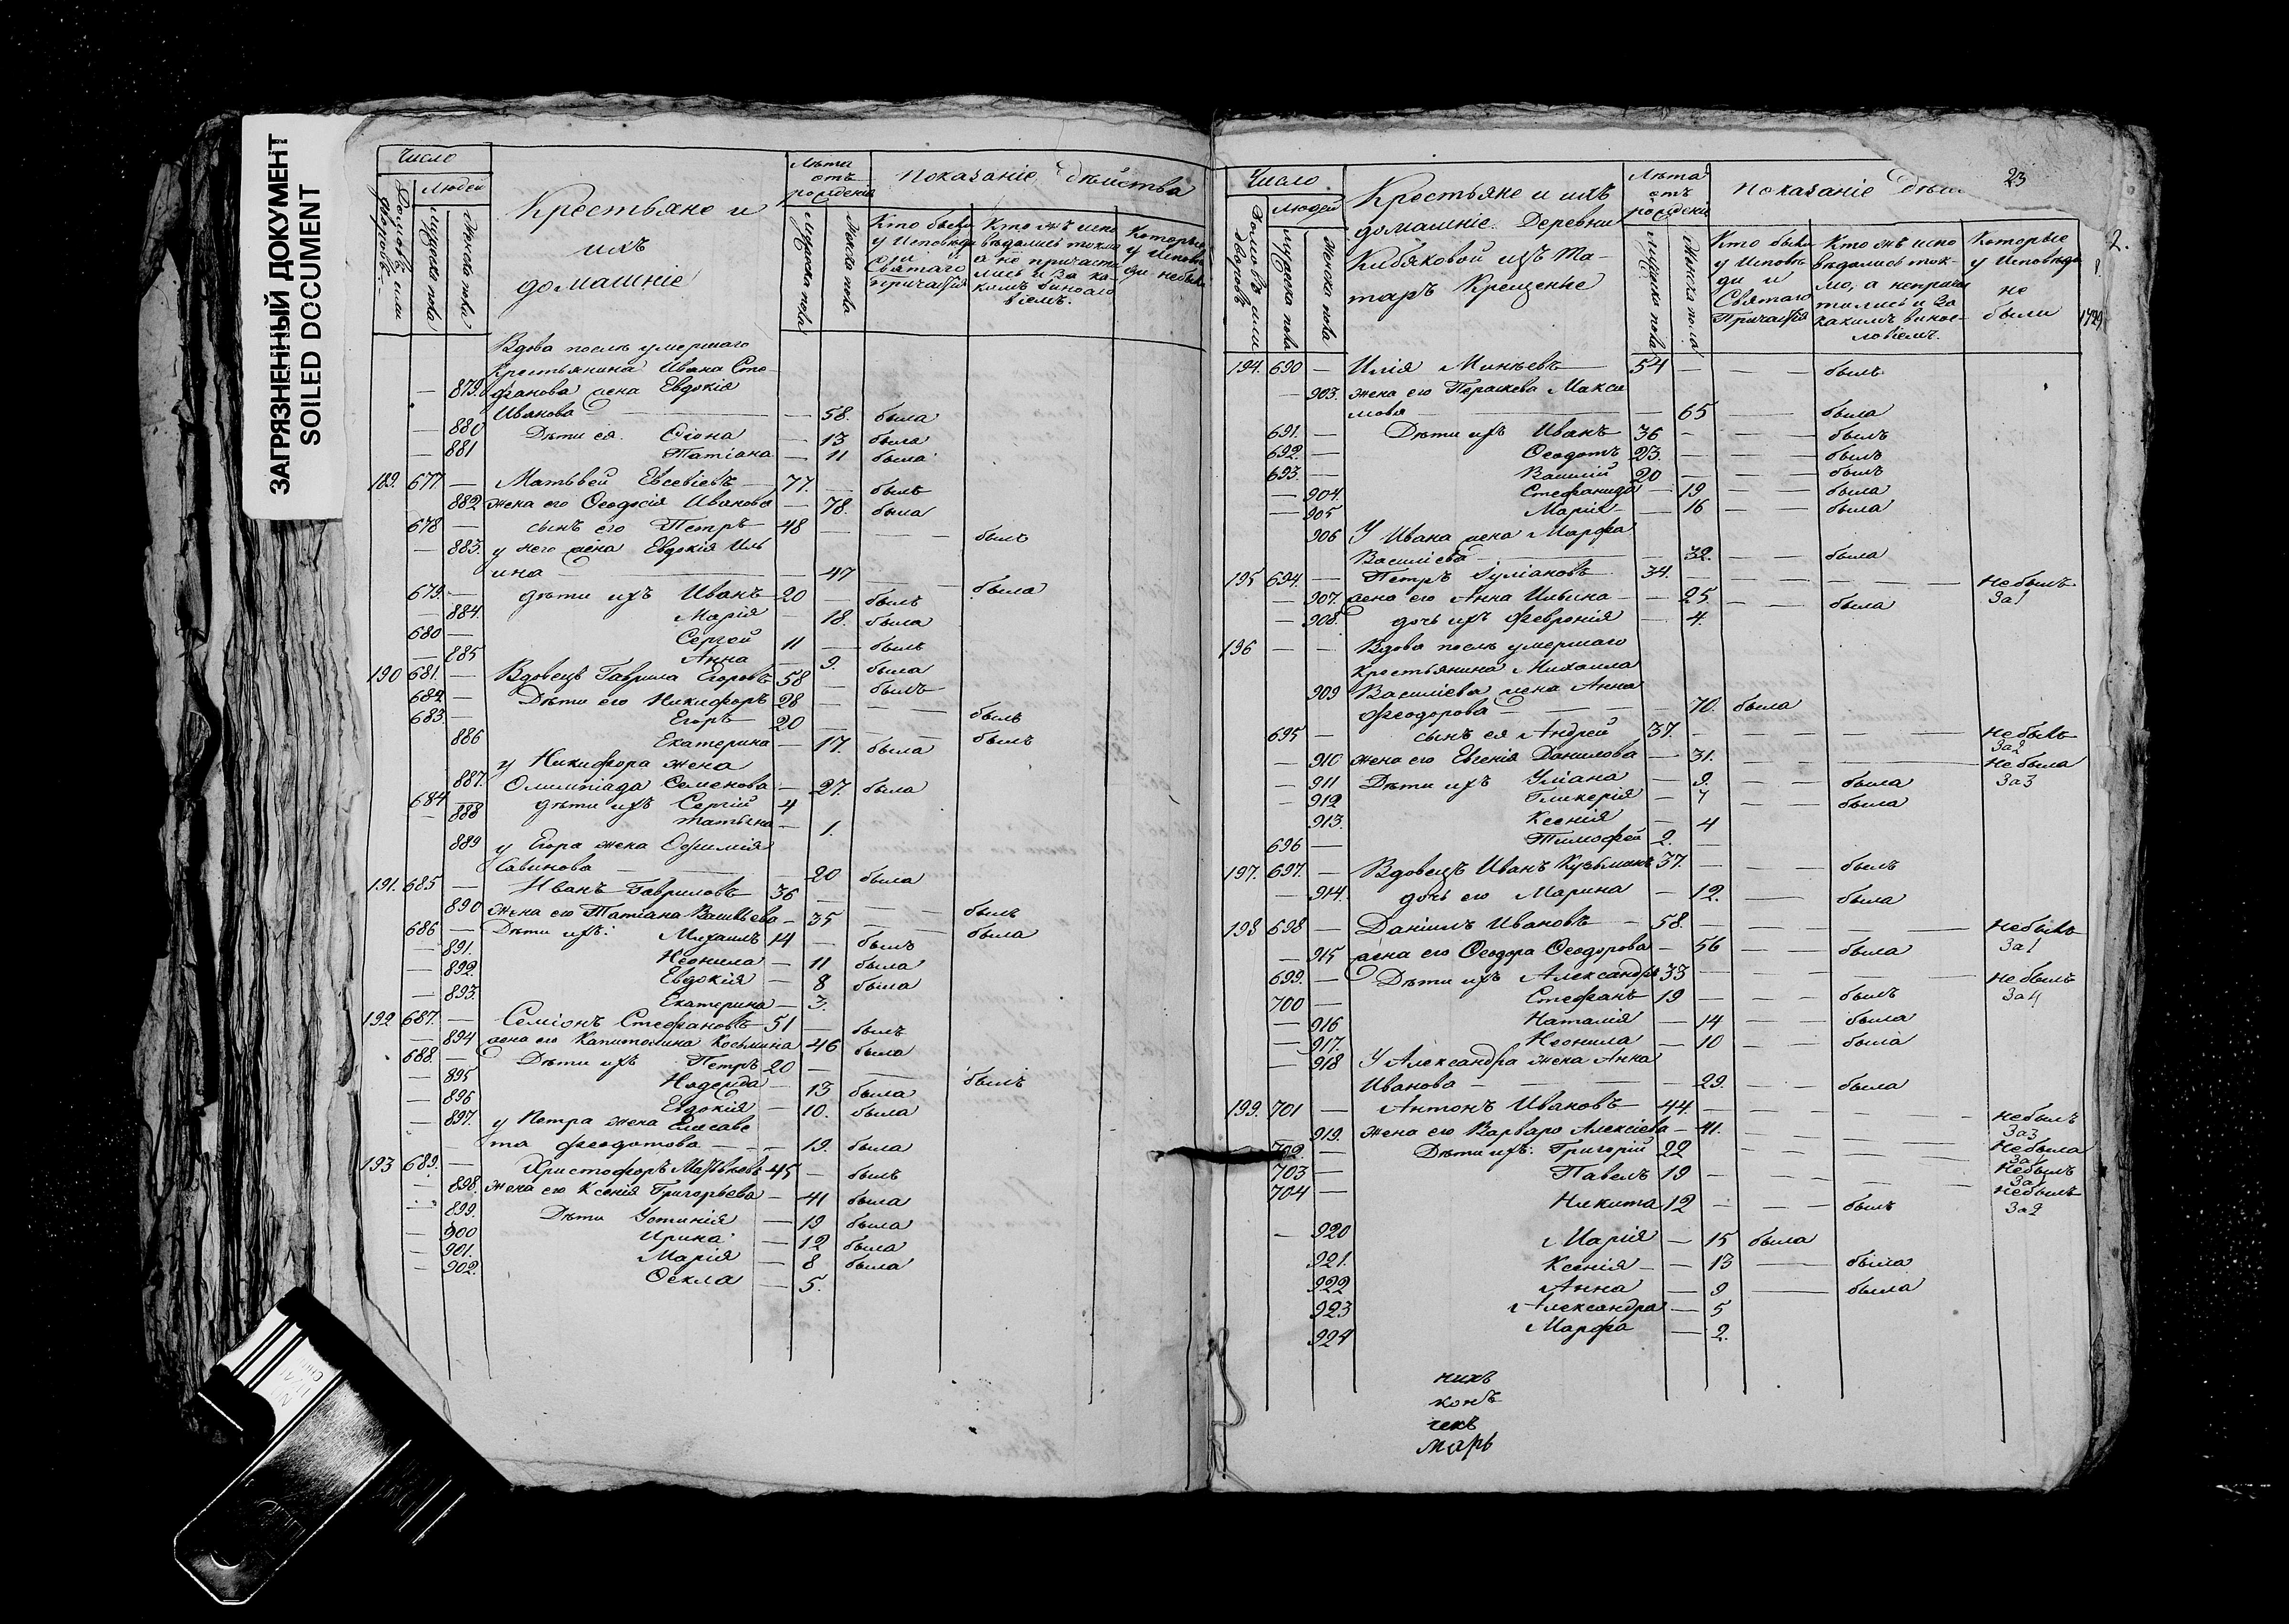 ЗАГРЯЗНЕННЫЙ ДОКУМЕНТ
SOILED DOCUMENT
Число
Людей
Домовъ или дворовъ
Мужска пола
Женска пола
Крестьяне и
ихъ
домашніе
Лѣта
отъ
рожденія
Мужска пола
Женска пола
Показаніе дѣйства
Кто были
у Исповѣди
и
Святаго
Причастія
Кто жъ испо
вѣдались токмо
а не причасти
лись и за ка
кимъ виносло
віемъ.
Которые
у Исповѣ
ди небыли
Вдова послѣ умершаго
Крестьянина Ивана Сте
— 879. фанова жена Евдокія
Иванова — — 58. была
— 880 Дѣти ея. — 13 была
— 881 Татіана — 11 была
189. 677 — Матѳвей Евсевіевъ — 77. — былъ
882 жена его Ѳеодосія Иванова — 78. была
678 — сынъ его Петръ — 48 — — — былъ
— 883. у него жена Евдокія Иль
ина — — 47 — — была
679. — дѣти ихъ Иванъ — 20 — былъ
— 884. Марія — 18. была
680 — Сергей 11 — былъ
— 885 Анна — 9. была
190 681. — Вдовецъ Гаврила Егоровъ 58 — былъ
682. — Дѣти его Никифоръ 28 — — — былъ
683. — Егоръ — 20 — — былъ
886 Екатерина — 17. была
у Никифора жена
887. Олимпіада Семенова — 27. была
684 — дѣти ихъ Сергій 4
— 888 Татьяна — 1.
889 у Егора жена Ефимія
Савинова — — 20 была
191. 685 — Иванъ Гавриловъ 36 — — — былъ
890 жена его Татіана Васильева — 35 — — была
686 — Дѣти ихъ: Михаилъ 14 — былъ
— 891. Неонила — 11 была
— 892. Евдокія — 8 была
— 893. Екатерина — 3.
192 687. — Семіонъ Стефановъ — 51 — былъ
— 894 жена его Капитолина Косьмина — 46 была
688. — Дѣти ихъ Петръ 20 — — былъ
— 895 Надежда — 13 была
— 896 Евдокія — 10. была
— 897. у Петра жена Елисаве
та Феодотова — — 19. была
193 689. — Христофоръ Матѳѣевъ — 45 — былъ
— 898. жена его Ксенія Григорьева — 41 была
— 899. Дѣти Устинія — 19 была
— 900 Ирина — 12 была
— 901. Марія — 8 была
— 902. Ѳекла — 5.
23
Число
Людей
Домовъ или дворовъ
Мужска пола
Женска пола
Крестьяне и ихъ
домашніе. Деревни
Кибяковой изъ Та-
таръ Крещенье
Лѣта
отъ
рожденія
Мужска пола
Женска пола
Показаніе
Кто были
у Исповѣ
ди и
Святаго
Причастія
Кто жъ испо
вѣдались ток-
мо, а непричас
тились и за
какимъ винос-
ловіемъ.
Которые
у Исповѣди
не
были
194. 690 — Илія — 54 — — — былъ
— 903. жена его Параскева Макси
мова — — 65 — — была
691. — Дѣти ихъ Иванъ 36 — — — былъ
692. — Ѳеодотъ 23. — — — былъ
693. — Василій 20 — — — былъ
— 904. Стефанида — 19 — — была
— 905 Марія — 16 — — была
906 У Ивана жена Марфа
Василіева — — 32. — — была
195 694. — Петръ Іуліановъ 34. — — — — — Небылъ
За 1
— 907. жена его Анна Ильина — 25. — — была
— 908. дочь ихъ Февронія — 4.
196 — — Вдова послѣ умершаго
Крестьянина Михаила
909 Василіева жена Анна
Феодорова — — — 70. была
695 — сынъ ея Андрей 37. — — — — — Небылъ
За 2
— 910 жена его Евгенія Данилова — 31. — — — Небыла
За 3
— 911 Дѣти ихъ Уліана — 9. — — была
— 912 Гликерія — 7 — — была
— 913. Ксенія — 4
696 — Тимофей 2. —
197. 697. — Вдовецъ Иванъ Кузьминъ 37. — — былъ
— 914. дочь его Марина — 12. — была
198 698 — Даніилъ Ивановъ — 58. — — — — Небылъ
За 1
— 915 жена его Ѳеодора Ѳеодорова — 56 — — была
699. — Дѣти ихъ Александръ 33 — — — — Небылъ
За 4
700 — Стефанъ 19 — — — былъ
— 916 Наталія — 14 — — была
— 917. Неонила — 10 — — была
— 918 У Александра жена Анна
Иванова — — — 29. — — была
199. 701 — Антонъ Ивановъ — 44. — — — — — Небылъ
За 3
919. жена его Варвара Алексіева — 41. — — — — — Небыла
702. — Дѣти ихъ: Григорій 22 — — — — — Небылъ
703 — Павелъ 19 — — — — — Небылъ
За 2
704 — Никита 12 — — — былъ
— 920 Марія — 15 была
921. Ксенія — — 13 — была
922 Анна — 9 — была
923 Александра — 5
924 Марфа — 2.